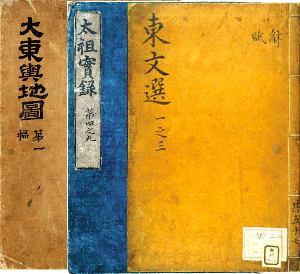 大東輿地圖
第一
太祖實錄
第四之九
東文選
一之三
辭
賦